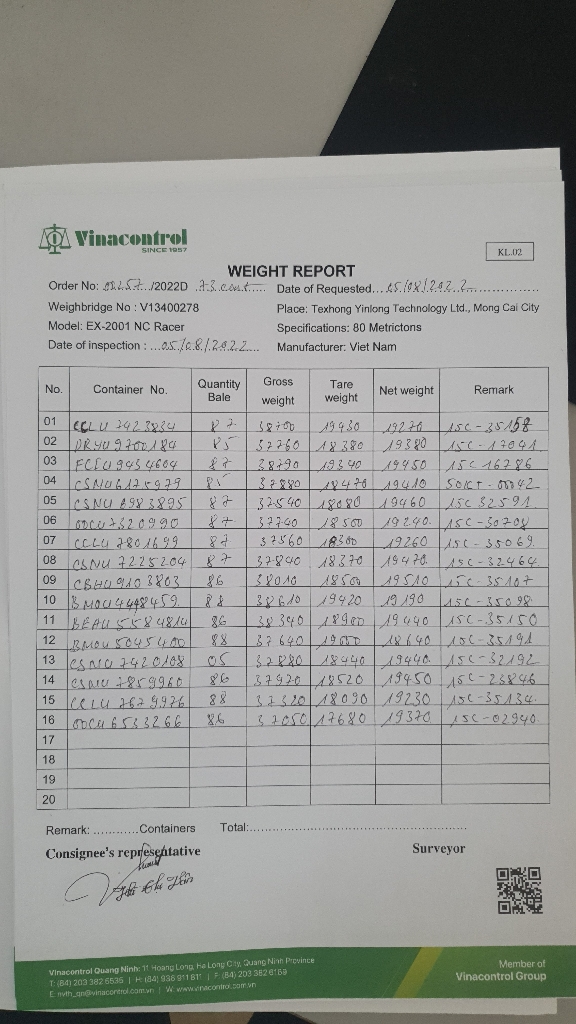 Vinacontrol
SINCE 1957
KL.02
WEIGHT REPORT
Order No: /2022D 73 cont Date of Requested...05/08/2022
Weighbridge No : V13400278 Place: Texhong Yinlong Technology Ltd., Mong Cai City
Model: EX-2001 NC Racer Specifications: 80 Metrictons
Date of inspection : ...05/08/2022... Manufacturer: Viet Nam
No. Container No. Quantity Bale Gross weight Tare weight Net weight Remark
01 CCLU 7423834 87 38700 19430 19270 15C-35158
02 DRYU 9700184 85 37760 18380 19380 15C-17041
03 FCIU 9434604 87 38790 19340 19450 15C 16786
04 CSNU 6175979 85 37880 18470 19410
05 CSNU 6983895 87 37540 18080 19460 15C 32591
06 OOCU 7320990 87 37740 18500 19240 15C-30708
07 CCLU 7801699 87 37560 18300 19260 15C-35069
08 CSNU 7225204 87 37840 18370 19470 15C-32464
09 CBHU 9103803 86 38010 18500 19510 15C-35107
10 BMOU 88 38610 19420 19190 15C-35098
11 BEAU 5584814 86 38340 18900 19440 15C-35150
12 BMOU 5045400 88 37640 19000 18640 15C-35191
13 CSNU 7420108 05 37880 18440 19440 15C-32192
14 CSNU 7859960 86 37970 18520 19450 15C-23846
15 CCLU 7679976 88 37320 18090 19230 15C-35134
16 OOCU 6533266 86 37050 17680 19370 15C-02940
17
18
19
20
Remark: ............Containers Total:
Consignee's representative Surveyor
Vinacontrol Quang Ninh: 11 Hoang Long, Ha Long City, Quang Ninh Province
T: (84) 203 382 6536 | H: (84) 936 911 811 | F: (84) 203 382 6169
E: nvth_qn@vinacontrol.com.vn | W: www.vinacontrol.com.vn
Member of
Vinacontrol Group